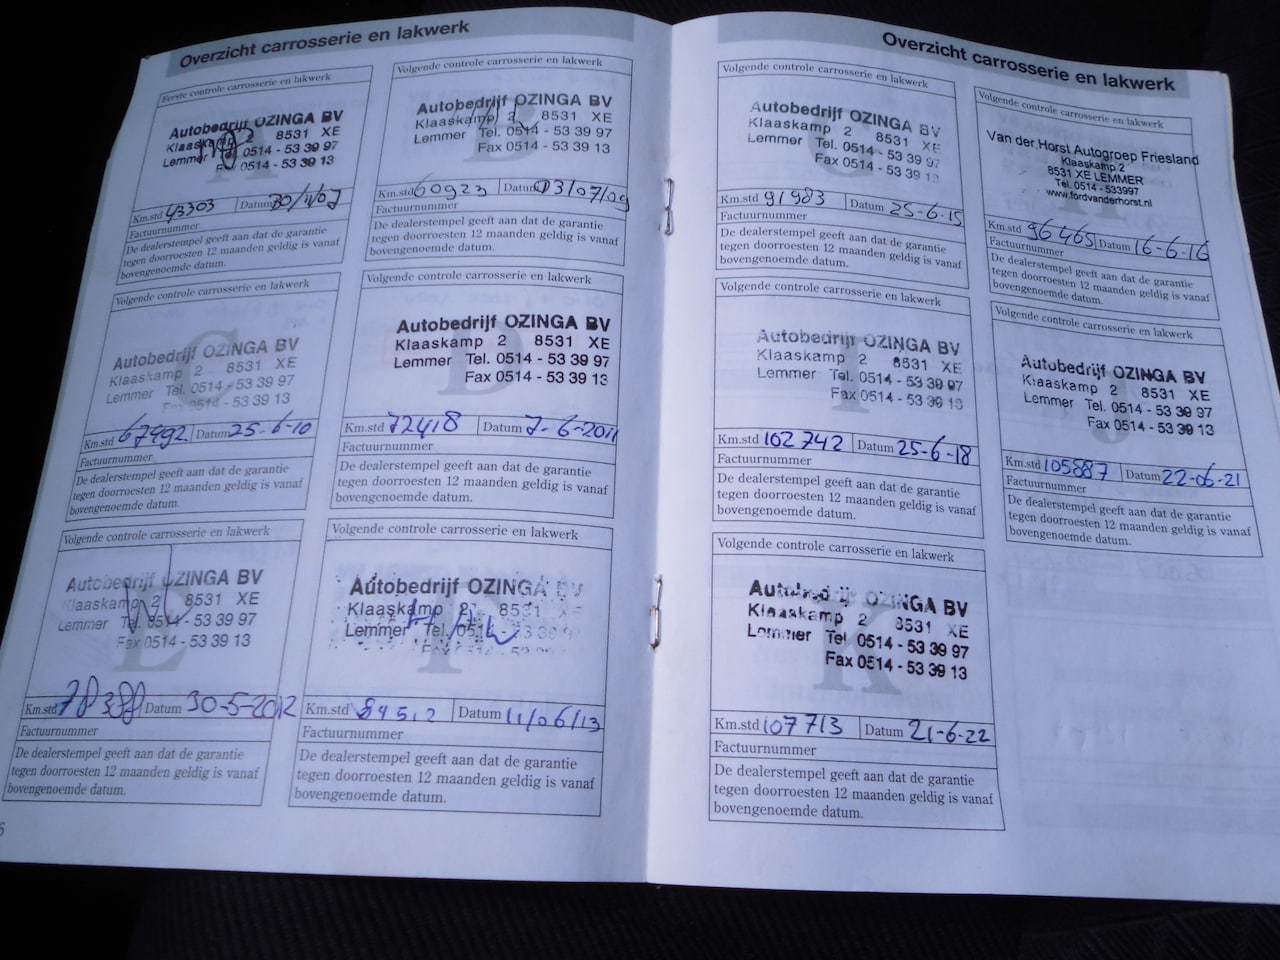 Overzicht carrosserie en lakwerk
Eerste controle carrosserie en lakwerk
Autobedrijf OZINGA BV
Klaaskamp 2 8531 XE
Lemmer Tel. 0514 - 53 39 97
Fax 0514 - 53 39 13
A
Km.std 43303 Datum
Factuurnummer
De dealerstempel geeft aan dat de garantie
tegen doorroesten 12 maanden geldig is vanaf
bovengenoemde datum.
Volgende controle carrosserie en lakwerk
Autobedrijf OZINGA BV
Klaaskamp 2 8531 XE
Lemmer Tel. 0514 - 53 39 97
Fax 0514 - 53 39 13
B
Km.std 60923 Datum 03/07/09
Factuurnummer
De dealerstempel geeft aan dat de garantie
tegen doorroesten 12 maanden geldig is vanaf
bovengenoemde datum.
Volgende controle carrosserie en lakwerk
Autobedrijf OZINGA BV
Klaaskamp 2 8531 XE
Lemmer Tel. 0514 - 53 39 97
Fax 0514 - 53 39 13
C
Km.std 67492 Datum 25-6-10
Factuurnummer
De dealerstempel geeft aan dat de garantie
tegen doorroesten 12 maanden geldig is vanaf
bovengenoemde datum.
Volgende controle carrosserie en lakwerk
Autobedrijf OZINGA BV
Klaaskamp 2 8531 XE
Lemmer Tel. 0514 - 53 39 97
Fax 0514 - 53 39 13
D
Km.std 72418 Datum 7-6-2011
Factuurnummer
De dealerstempel geeft aan dat de garantie
tegen doorroesten 12 maanden geldig is vanaf
bovengenoemde datum.
Volgende controle carrosserie en lakwerk
Autobedrijf OZINGA BV
Klaaskamp 2 8531 XE
Lemmer Tel. 0514 - 53 39 97
Fax 0514 - 53 39 13
E
Km.std 78388 Datum 30-5-2012
Factuurnummer
De dealerstempel geeft aan dat de garantie
tegen doorroesten 12 maanden geldig is vanaf
bovengenoemde datum.
Volgende controle carrosserie en lakwerk
Autobedrijf OZINGA BV
Klaaskamp 2 8531 XE
Lemmer Tel. 0514
F
Km.std 84512 Datum 11/06/13
Factuurnummer
De dealerstempel geeft aan dat de garantie
tegen doorroesten 12 maanden geldig is vanaf
bovengenoemde datum.
6
Overzicht carrosserie en lakwerk
Volgende controle carrosserie en lakwerk
Autobedrijf OZINGA BV
Klaaskamp 2 8531 XE
Lemmer Tel. 0514 - 53 39 97
Fax 0514 - 53 39 13
G
Km.std 91983 Datum 25-6-15
Factuurnummer
De dealerstempel geeft aan dat de garantie
tegen doorroesten 12 maanden geldig is vanaf
bovengenoemde datum.
Volgende controle carrosserie en lakwerk
Van der Horst Autogroep Friesland
Klaaskamp 2
8531 XE LEMMER
Tel. 0514 - 533997
www.fordvanderhorst.nl
H
Km.std 96465 Datum 16-6-16
Factuurnummer
De dealerstempel geeft aan dat de garantie
tegen doorroesten 12 maanden geldig is vanaf
bovengenoemde datum.
Volgende controle carrosserie en lakwerk
Autobedrijf OZINGA BV
Klaaskamp 2 8531 XE
Lemmer Tel. 0514 - 53 39 97
Fax 0514 - 53 39 13
I
Km.std 102742 Datum 25-6-18
Factuurnummer
De dealerstempel geeft aan dat de garantie
tegen doorroesten 12 maanden geldig is vanaf
bovengenoemde datum.
Volgende controle carrosserie en lakwerk
Autobedrijf OZINGA BV
Klaaskamp 2 8531 XE
Lemmer Tel. 0514 - 53 39 97
Fax 0514 - 53 39 13
J
Km.std 105887 Datum 22-06-21
Factuurnummer
De dealerstempel geeft aan dat de garantie
tegen doorroesten 12 maanden geldig is vanaf
bovengenoemde datum.
Volgende controle carrosserie en lakwerk
Autobedrijf OZINGA BV
Klaaskamp 2 8531 XE
Lemmer Tel. 0514 - 53 39 97
Fax 0514 - 53 39 13
K
Km.std 107713 Datum 21-6-22
Factuurnummer
De dealerstempel geeft aan dat de garantie
tegen doorroesten 12 maanden geldig is vanaf
bovengenoemde datum.